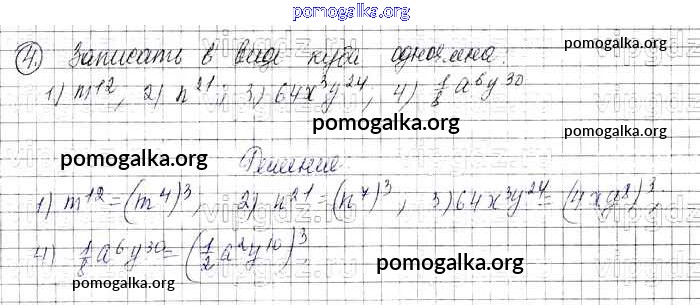 pomogalka.org
4. Записать в виде куба одночлена:
pomogalka.org
1) m¹², 2) n²¹, 3) 64x³y²⁴, 4) 1/8 a⁶y³⁰
pomogalka.org
pomogalka.org Решение:
1) m¹²=(m⁴)³, 2) n²¹=(n⁷)³, 3) 64x³y²⁴=(4xy⁸)³,
4) 1/8 a⁶y³⁰=(1/2 a²y¹⁰)³
pomogalka.org pomogalka.org